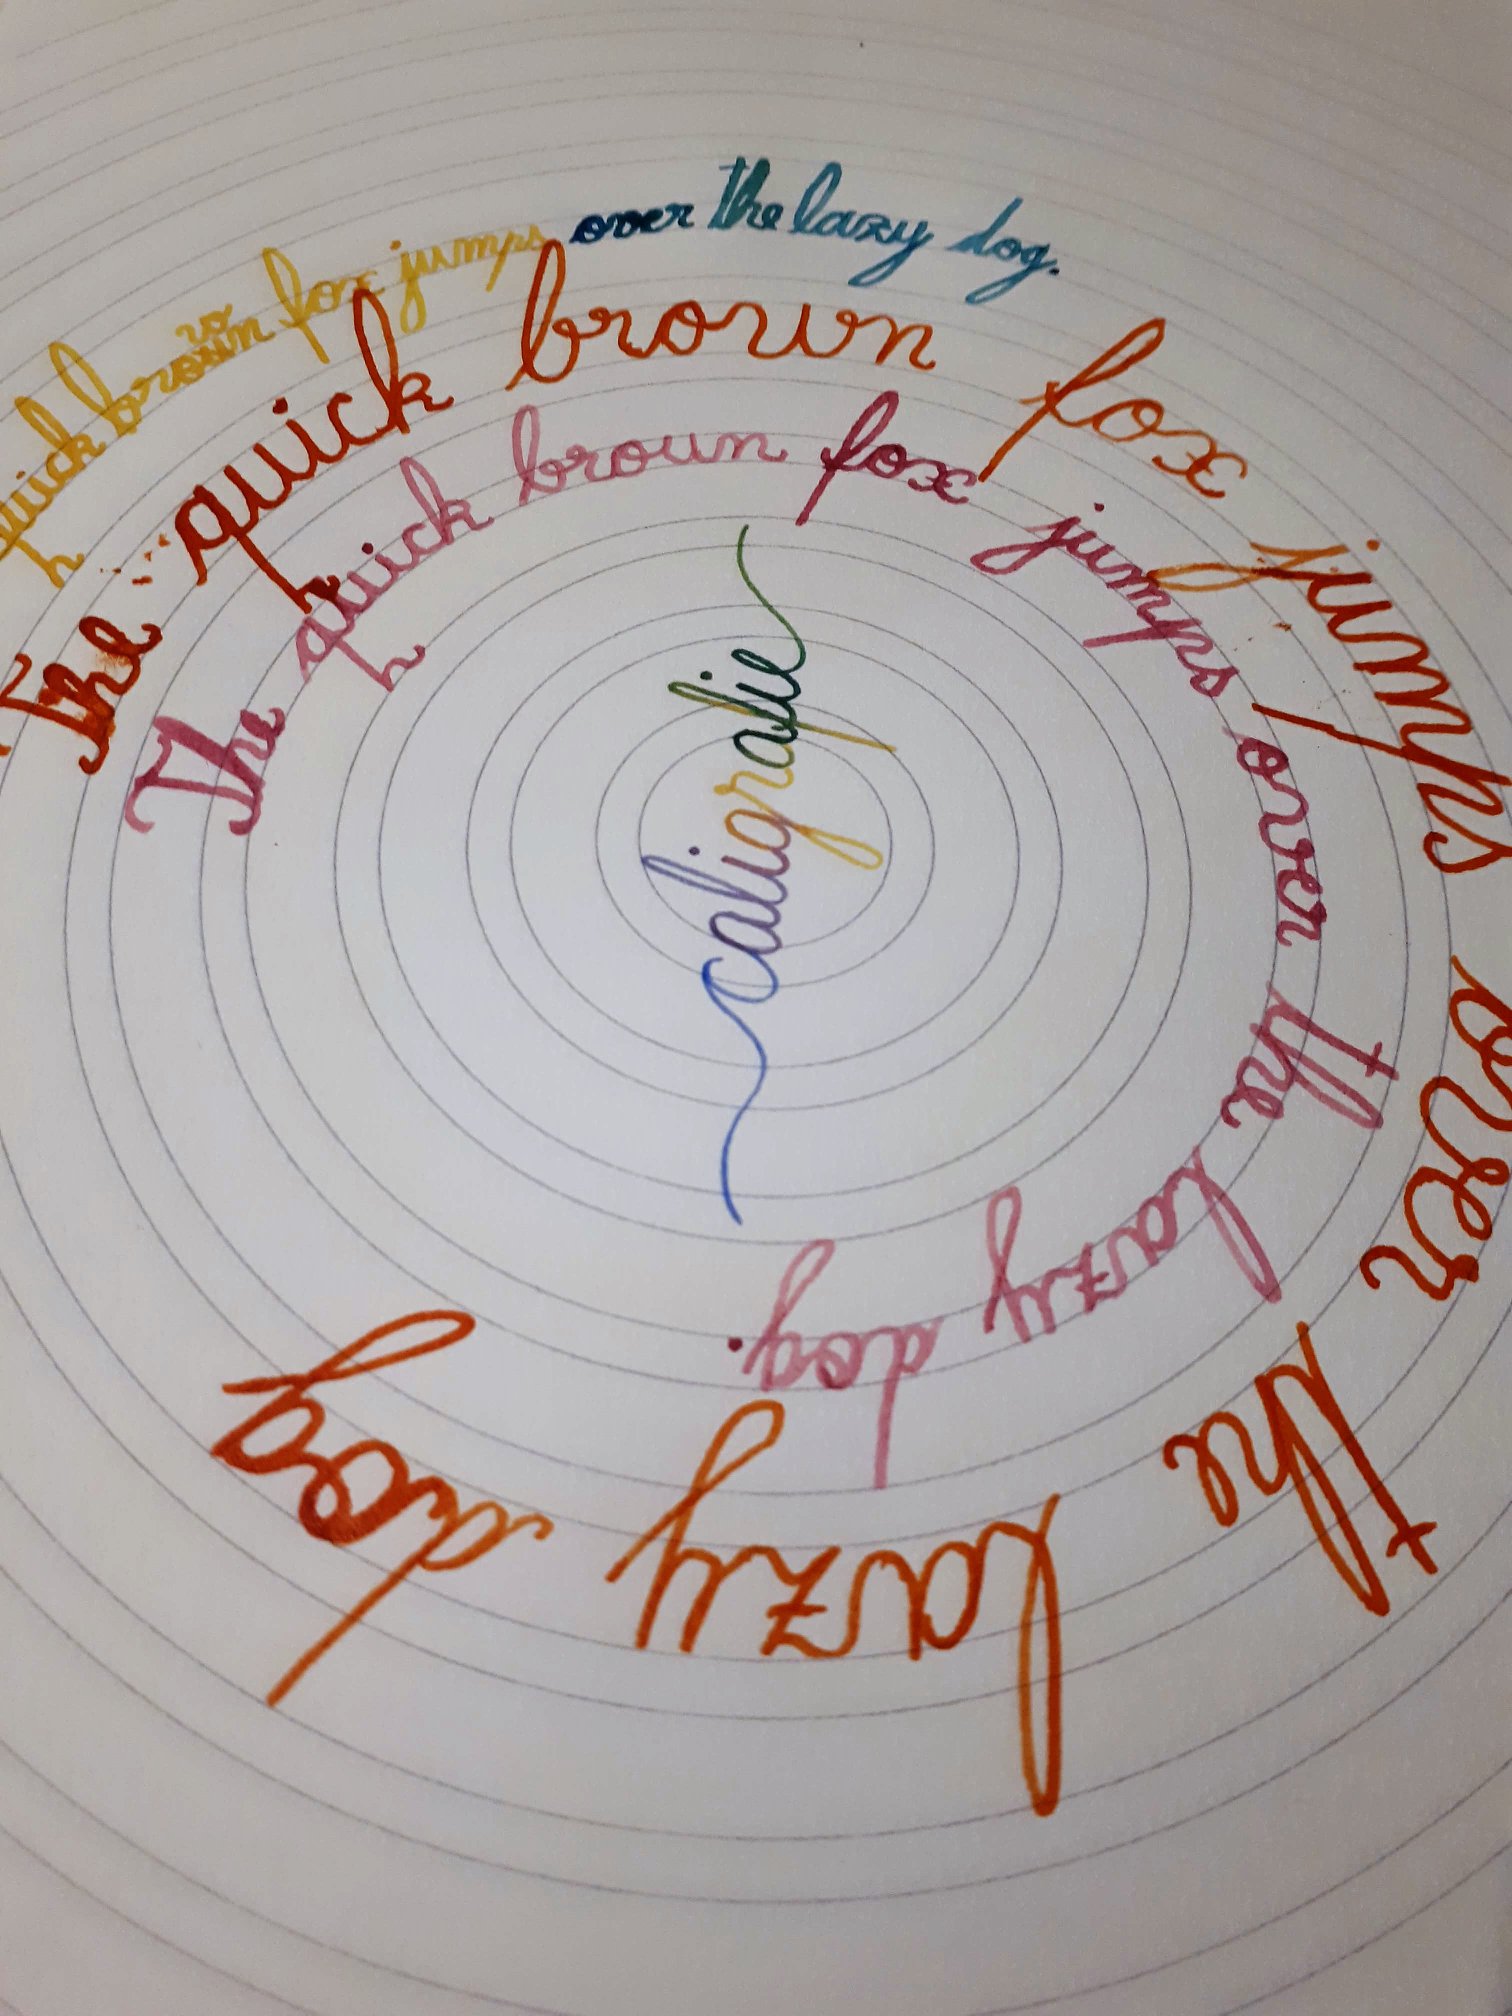 quick brown fox jumps over the lazy dog.
The quick brown fox jumps over the lazy dog
The quick brown fox jumps over the lazy dog.
caligrafie